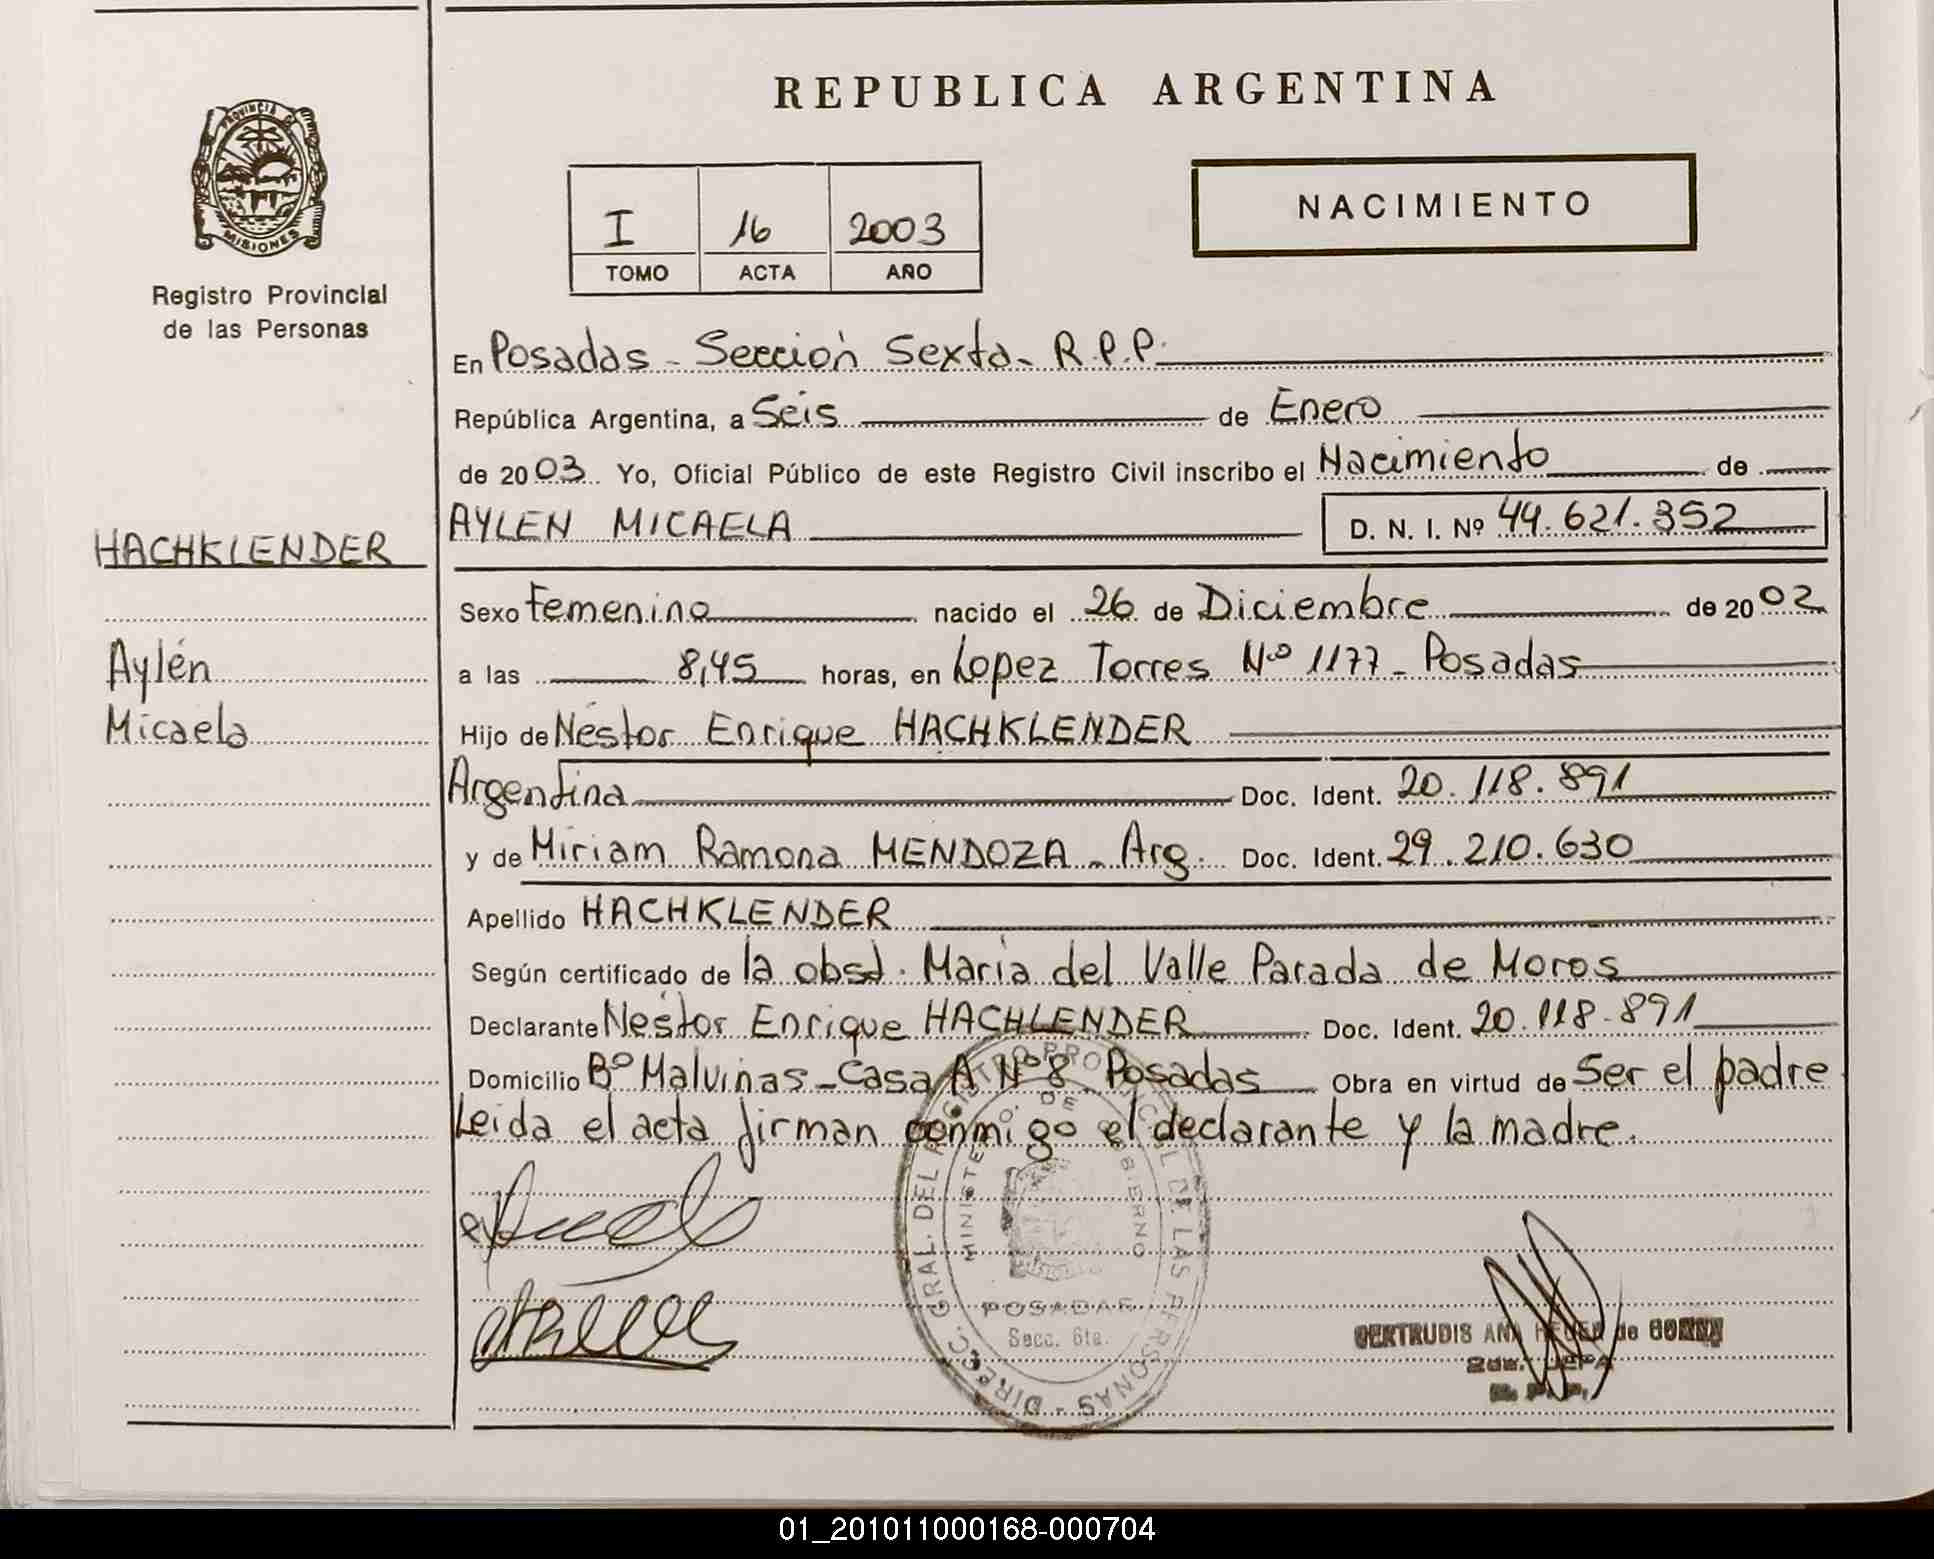 REPUBLICA ARGENTINA
PROVINCIA DE
MISIONES
Registro Provincial
de las Personas
I 16 2003
TOMO ACTA AÑO
NACIMIENTO
En Posadas - Sección Sexta - R.P.P.
República Argentina, a Seis de Enero
de 2003. Yo, Oficial Público de este Registro Civil inscribo el Nacimiento de
AYLEN MICAELA D. N. I. Nº 44.621.352
HACHKLENDER
Aylén
Micaela
Sexo femenino nacido el 26 de Diciembre de 2002
a las 8,45 horas, en Lopez Torres Nº 1177 - Posadas
Hijo de Néstor Enrique HACHKLENDER
Argentina Doc. Ident. 20.118.891
y de Miriam Ramona MENDOZA - Arg. Doc. Ident. 29.210.630
Apellido HACHKLENDER
Según certificado de la obst. María del Valle Parada de Moros
Declarante Nestor Enrique HACHLENDER Doc. Ident. 20.118.891
Domicilio Bº Malvinas - Casa A Nº 8 Posadas Obra en virtud de Ser el padre.
Leida el acta firman conmigo el declarante y la madre.
DIREC. GRAL. DEL REGISTRO PROVINCIAL DE LAS PERSONAS
MINISTERIO DE GOBIERNO
POSADAS
Secc. 6ta.
GERTRUDIS ANA de
2da. JEFA
R. P. P.
01_201011000168-000704